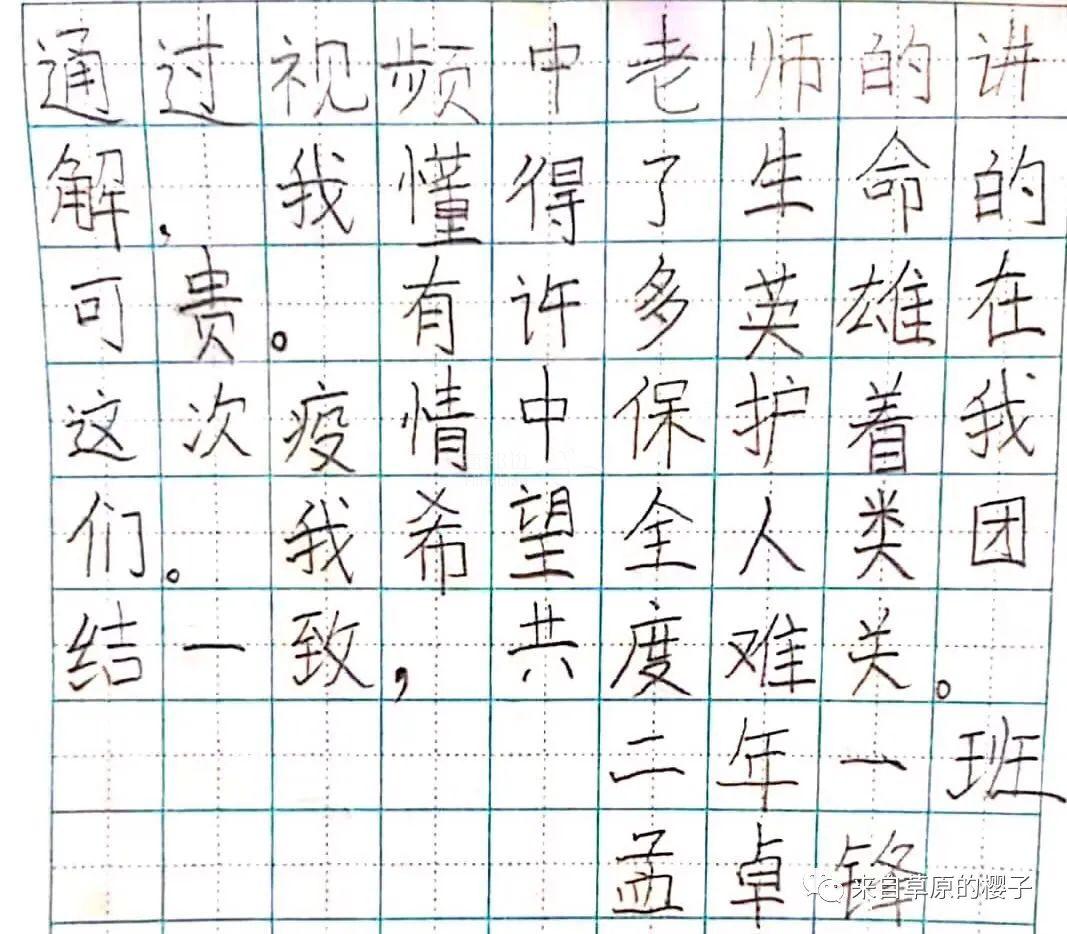 通过视频中老师的讲
解，我懂得了生命的
可贵。有许多英雄在
这次疫情中保护着我
们。我希望全人类团
结一致，共度难关。
二年一班
孟卓锋
来自草原的樱子